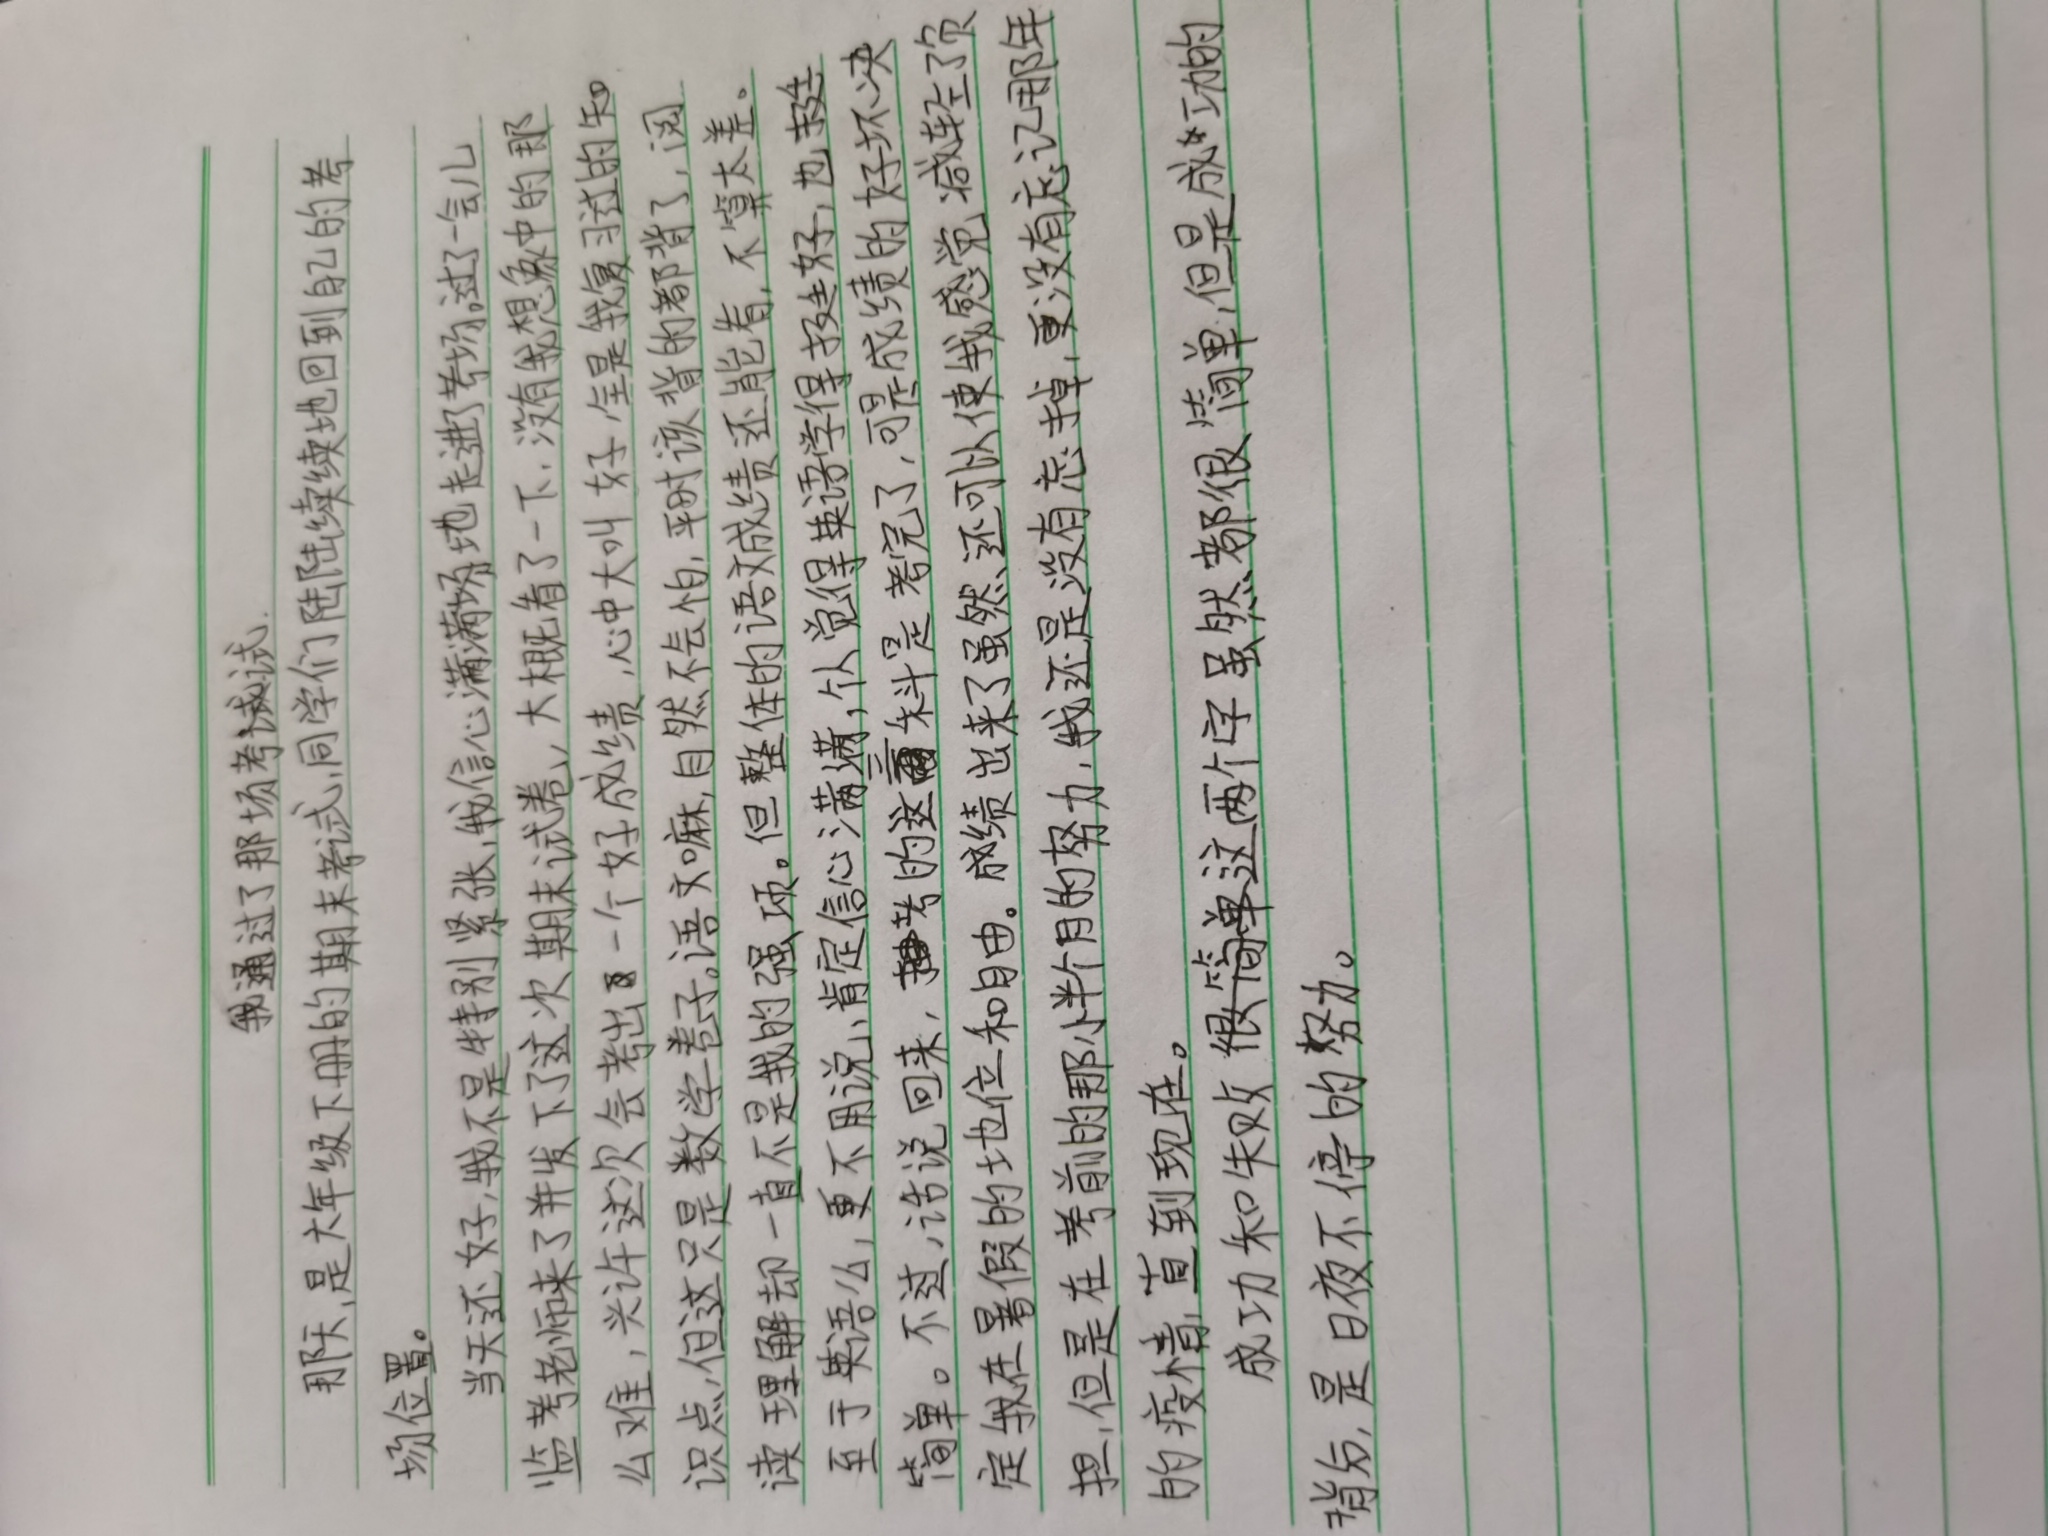 我通过了那场考试.
那天,是六年级下册的期末考试,同学们陆陆续续地回到自己的考
场位置。
当天还好,我不是特别紧张,我信心满满地走进了考场。过了一会儿
监考老师来了并发下了这次期末试卷,大概看了一下、没有我想象中的那
么难,兴许这次会考出一个好成绩,心中大叫好,全是我复习过的知
识点,但这只是数学卷子。语文嘛,自然不会怕,平时该背的都背了,阅
读理解却一直不是我的强项。但整体的语文成绩还能看,不算太差。
至于英语么,更不用说,肯定信心满满,个人觉得英语学得挺好,也挺
简单。不过,话说回来,考的这三科是考完了,可是成绩的好坏决
定我在暑假的地位和自由。成绩出来了虽然还可以使我感觉减轻了负
担,但是在考前的那小半个月的努力,我还是没有忘掉,更没有忘记那年
的疫情,直到现在。
成功和失败很简单这两个字虽然都很简单,但是成功的
背后,是日夜不停的努力。